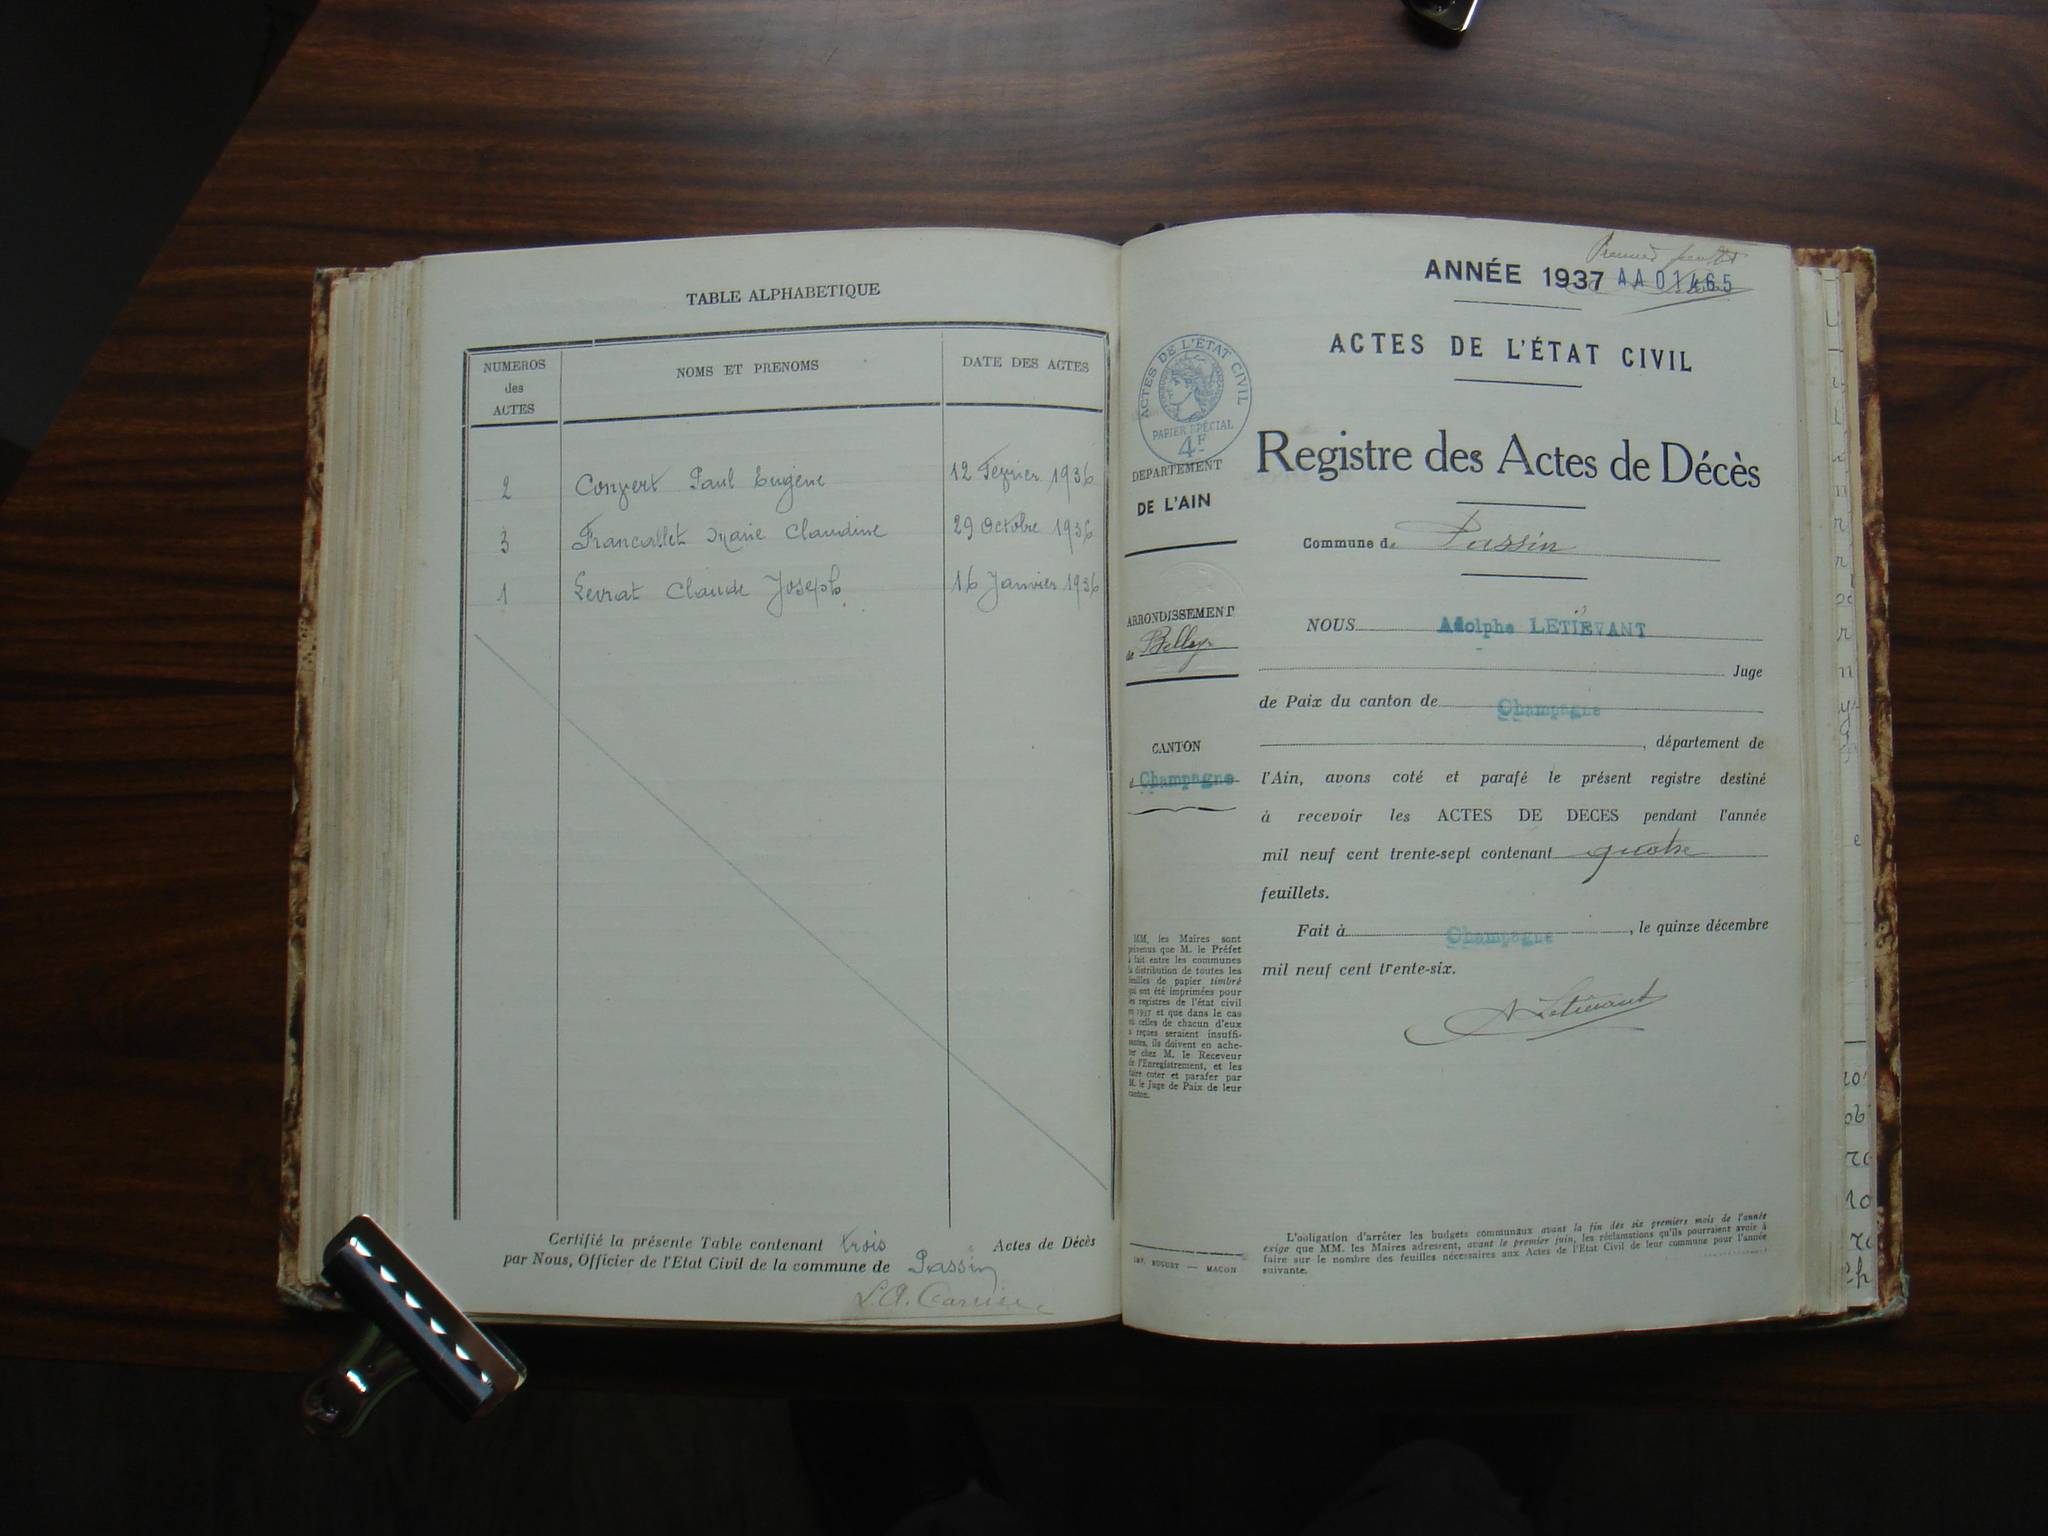 TABLE ALPHABETIQUE
NUMEROS des ACTES
NOMS ET PRENOMS
DATE DES ACTES
2 Convert Paul Eugène 12 Février 1936
3 Francallet Marie Claudine 29 Octobre 1936
1 Levrat Claude Joseph 16 Janvier 1936
Certifié la présente Table contenant trois Actes de Décès
par Nous, Officier de l'Etat Civil de la commune de Passin
Premier feuillet
ANNÉE 1937 AA01465
ACTES DE L'ÉTAT CIVIL
ACTES DE L'ÉTAT CIVIL
PAPIER SPÉCIAL
4F
Registre des Actes de Décès
DEPARTEMENT
DE L'AIN
Commune de Passin
ARRONDISSEMENT
de Belley
CANTON
d Champagne
NOUS Adolphe LETIÉVANT
Juge
de Paix du canton de Champagne
, département de
l'Ain, avons coté et parafé le présent registre destiné
à recevoir les ACTES DE DECES pendant l'année
mil neuf cent trente-sept contenant quatre
feuillets.
Fait à Champagne, le quinze décembre
mil neuf cent trente-six.
A Letiévant
MM. les Maires sont
prévenus que M. le Préfet
a fait entre les communes
la distribution de toutes les
feuilles de papier timbré
qui ont été imprimées pour
les registres de l'état civil
en 1937 et que dans le cas
où celles de chacun d'eux
a reçues seraient insuffi-
santes, ils doivent en ache-
ter chez M. le Receveur
de l'Enregistrement, et les
faire coter et parafer par
M. le Juge de Paix de leur
canton.
IMP. BUGUET — MACON
L'obligation d'arrêter les budgets communaux avant la fin des six premiers mois de l'année
exige que MM. les Maires adressent, avant le premier juin, les réclamations qu'ils pourraient avoir à
faire sur le nombre des feuilles nécessaires aux Actes de l'Etat Civil de leur commune pour l'année
suivante.